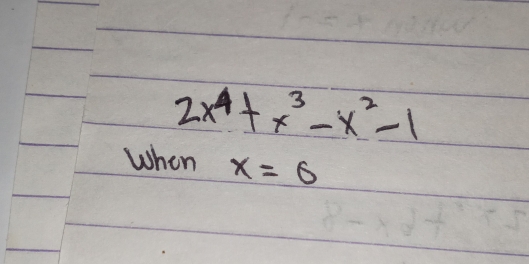 2x⁴ + x³ - x² - 1
When x = 6